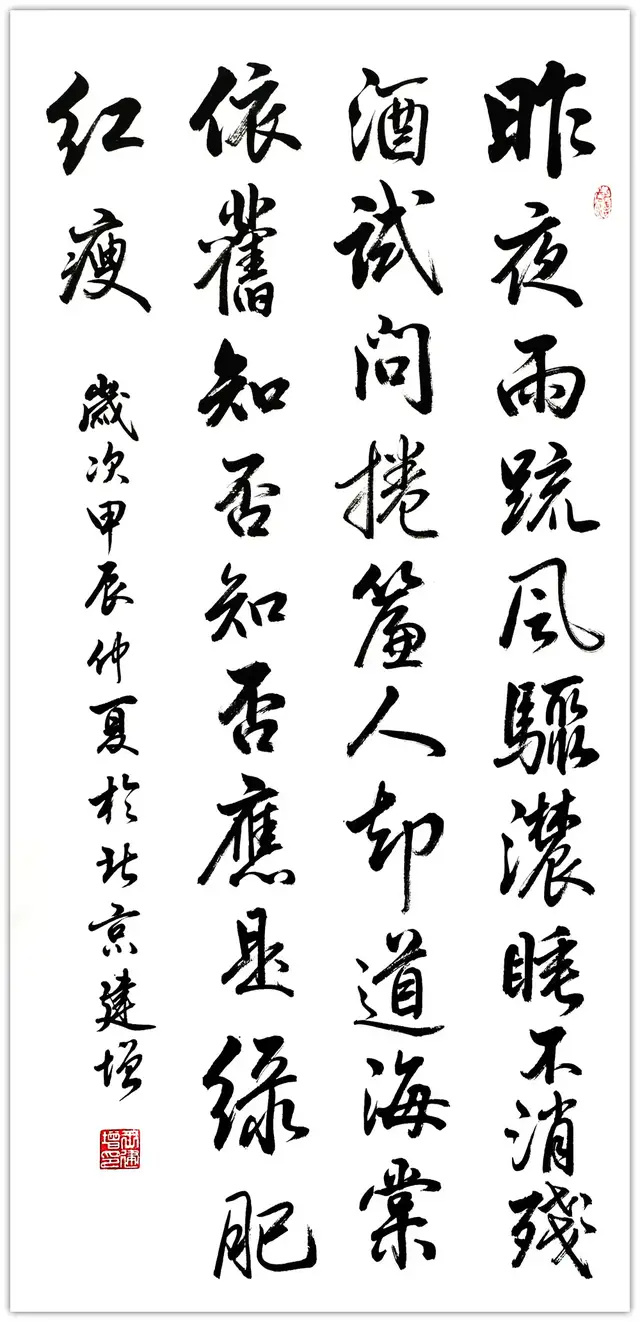 昨夜雨疏风驟濃睡不消殘
酒試問捲簾人却道海棠
依舊知否知否應是綠肥
红瘦
歲次甲辰仲夏於北京建增